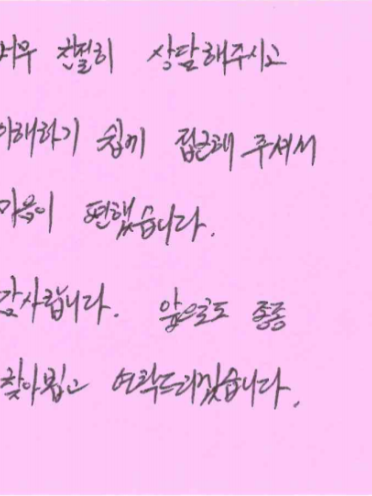 매우 친절히 상담해주시고
이해하기 쉽게 접근해 주셔서
마음이 편했습니다.
감사합니다. 앞으로도 종종
찾아뵙고 연락드리겠습니다.